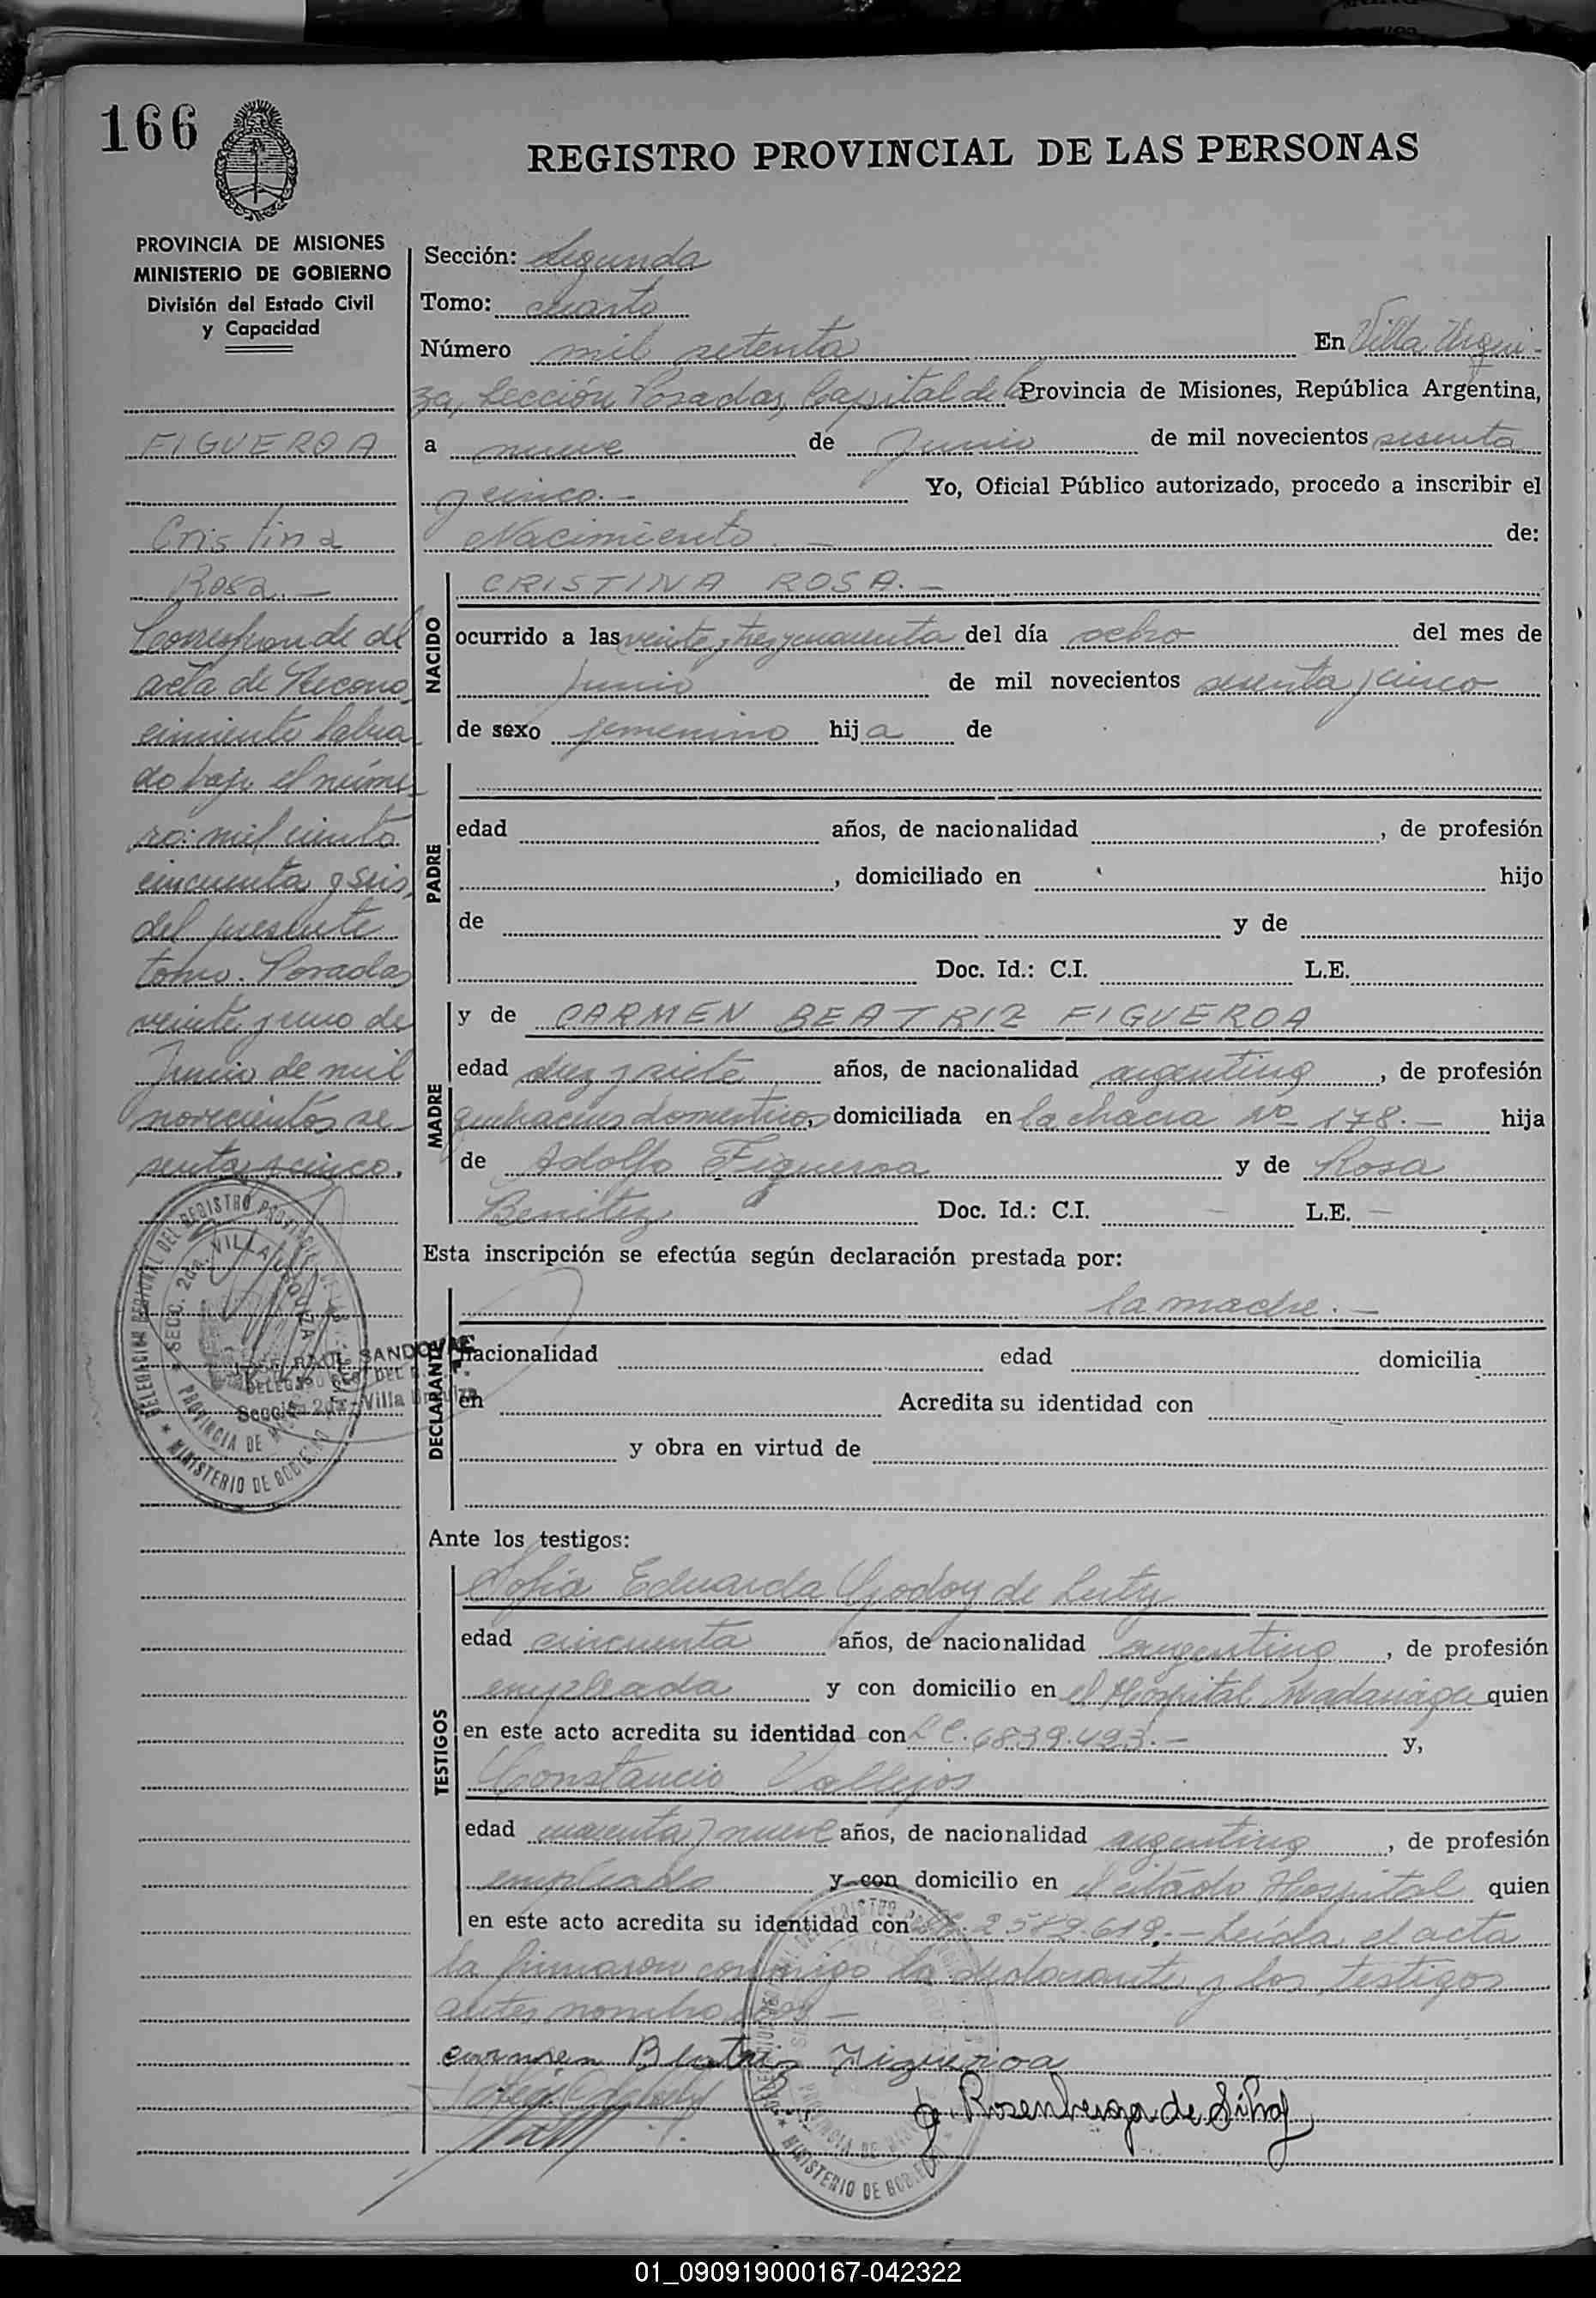 166
REGISTRO PROVINCIAL DE LAS PERSONAS
PROVINCIA DE MISIONES
MINISTERIO DE GOBIERNO
División del Estado Civil
y Capacidad
FIGUEROA
Cristina
Rosa.—
Corresponde al
acta de Recono-
cimiento labra-
do bajo el núme-
ro: mil ciento
cincuenta y seis,
del presente
tomo. Posadas
veinte y uno de
Junio de mil
novecientos se-
senta y cinco.
DELEGACION REGIONAL DEL REGISTRO PROVINCIAL DE LAS
SECC. 2da. VILLA URQUIZA
PROVINCIA DE
MINISTERIO DE GOBIERNO
RAUL SANDOVAL
DELEGADO REG. DEL R.
Sección 2da.-Villa Urquiza
Sección: Segunda
Tomo: cuarto
Número mil setenta En Villa Urqui-
za, Sección Posadas, Capital de la Provincia de Misiones, República Argentina,
a nueve de Junio de mil novecientos sesenta
y cinco.— Yo, Oficial Público autorizado, procedo a inscribir el
Nacimiento.— de:
NACIDO
CRISTINA ROSA.—
ocurrido a las veinte y tres y cuarenta del día ocho del mes de
Junio de mil novecientos sesenta y cinco
de sexo femenino hija de
PADRE
edad años, de nacionalidad , de profesión
, domiciliado en hijo
de y de
Doc. Id.: C.I. L.E.
MADRE
y de CARMEN BEATRIZ FIGUEROA
edad diez y siete años, de nacionalidad argentina, de profesión
quehaceres domesticos, domiciliada en la chacra Nº 178.— hija
de Adolfo Figueroa y de Rosa
Benitez Doc. Id.: C.I. — L.E. —
Esta inscripción se efectúa según declaración prestada por:
DECLARANTE
la madre.—
nacionalidad edad domicilia
en Acredita su identidad con
y obra en virtud de
Ante los testigos:
TESTIGOS
Sofia Eduarda Godoy de Lutz
edad cincuenta años, de nacionalidad argentina, de profesión
empleada y con domicilio en el Hospital Madariaga quien
en este acto acredita su identidad con L C. 6839.493.— y,
Constancio Vallejos
edad cuarenta y nueve años, de nacionalidad argentina, de profesión
empleado y con domicilio en el citado Hospital quien
en este acto acredita su identidad con 2.582.619.— Leída el acta
la firmaron conmigo la declarante y los testigos
antes nombrados—
carmen Beatriz Figueroa
Rosenberga de Silva
PROVINCIA DE
MINISTERIO DE GOBIERNO
01_090919000167-042322